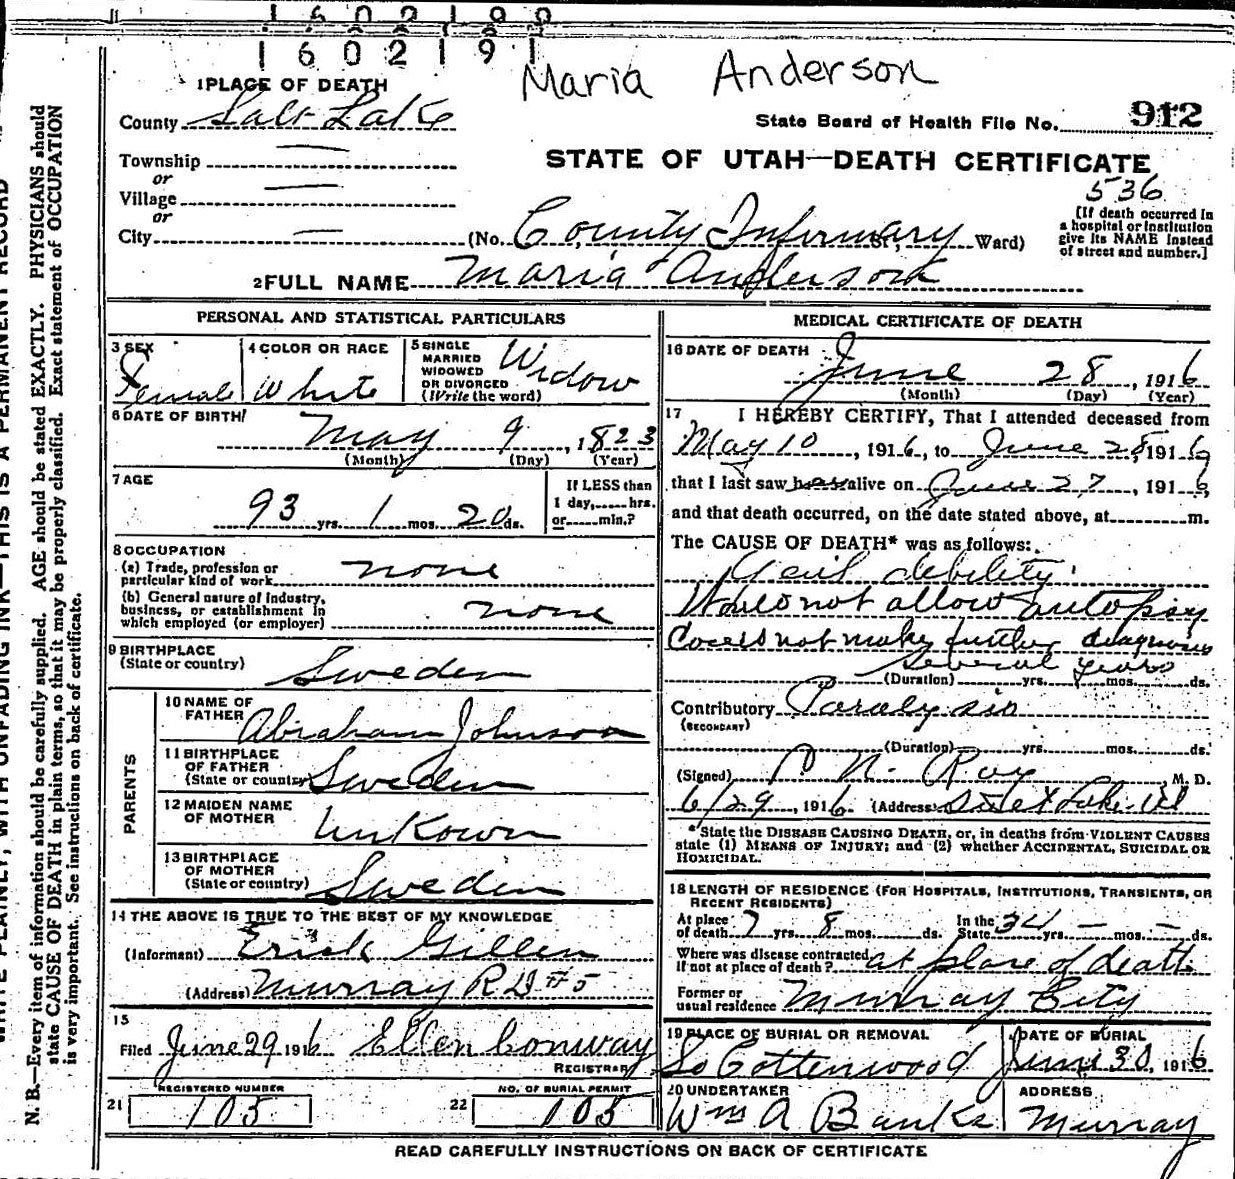 1602190
1602191
Maria Anderson
1 PLACE OF DEATH
County Salt Lake
State Board of Health File No. 912
Township —
or
Village —
or
City —
STATE OF UTAH—DEATH CERTIFICATE
536
(No. County Infirmary St., Ward)
[If death occurred in
a hospital or institution
give its NAME instead
of street and number.]
2 FULL NAME Maria Anderson
PERSONAL AND STATISTICAL PARTICULARS
3 SEX
Female
4 COLOR OR RACE
White
5 SINGLE
MARRIED
WIDOWED
OR DIVORCED
(Write the word)
Widow
6 DATE OF BIRTH
May 9, 1823
(Month) (Day) (Year)
7 AGE
93 yrs. 1 mos. 20 ds.
If LESS than
1 day,......hrs.
or......min.?
8 OCCUPATION
(a) Trade, profession or
particular kind of work none
(b) General nature of industry,
business, or establishment in
which employed (or employer) none
9 BIRTHPLACE
(State or country) Sweden
PARENTS
10 NAME OF
FATHER Abraham Johnson
11 BIRTHPLACE
OF FATHER
(State or country) Sweden
12 MAIDEN NAME
OF MOTHER Unkown
13 BIRTHPLACE
OF MOTHER
(State or country) Sweden
14 THE ABOVE IS TRUE TO THE BEST OF MY KNOWLEDGE
(Informant) Erick Gillen
(Address) Murray R D #5
15
Filed June 29 1916 Ellen Conway
REGISTRAR
REGISTERED NUMBER
21 105
NO. OF BURIAL PERMIT
22 105
MEDICAL CERTIFICATE OF DEATH
16 DATE OF DEATH
June 28, 1916
(Month) (Day) (Year)
17 I HEREBY CERTIFY, That I attended deceased from
May 10, 1916, to June 28, 1916
that I last saw her alive on June 27, 1916,
and that death occurred, on the date stated above, at m.
The CAUSE OF DEATH* was as follows:
debility
Would not allow autopsy
not make further diagnosis
several years
(Duration) yrs. mos. ds.
Contributory Paralysis
(SECONDARY)
(Duration) yrs. mos. ds.
(Signed) N. Ray, M. D.
6/29, 1916 (Address) Lake
*State the DISEASE CAUSING DEATH, or, in deaths from VIOLENT CAUSES
state (1) MEANS OF INJURY; and (2) whether ACCIDENTAL, SUICIDAL OR
HOMICIDAL.
18 LENGTH OF RESIDENCE (FOR HOSPITALS, INSTITUTIONS, TRANSIENTS, OR
RECENT RESIDENTS)
At place
of death 7 yrs. 8 mos. ds.
In the
State 34 yrs. — mos. — ds.
Where was disease contracted
if not at place of death? at place of death
Former or
usual residence Murray City
19 PLACE OF BURIAL OR REMOVAL
So Cottenwood
DATE OF BURIAL
June 30, 1916
20 UNDERTAKER
Wm A Banks
ADDRESS
Murray
READ CAREFULLY INSTRUCTIONS ON BACK OF CERTIFICATE
WRITE PLAINLY, WITH UNFADING INK—THIS IS A PERMANENT RECORD
N. B.—Every item of information should be carefully supplied. AGE should be stated EXACTLY. PHYSICIANS should
state CAUSE OF DEATH in plain terms, so that it may be properly classified. Exact statement of OCCUPATION
is very important. See instructions on back of certificate.